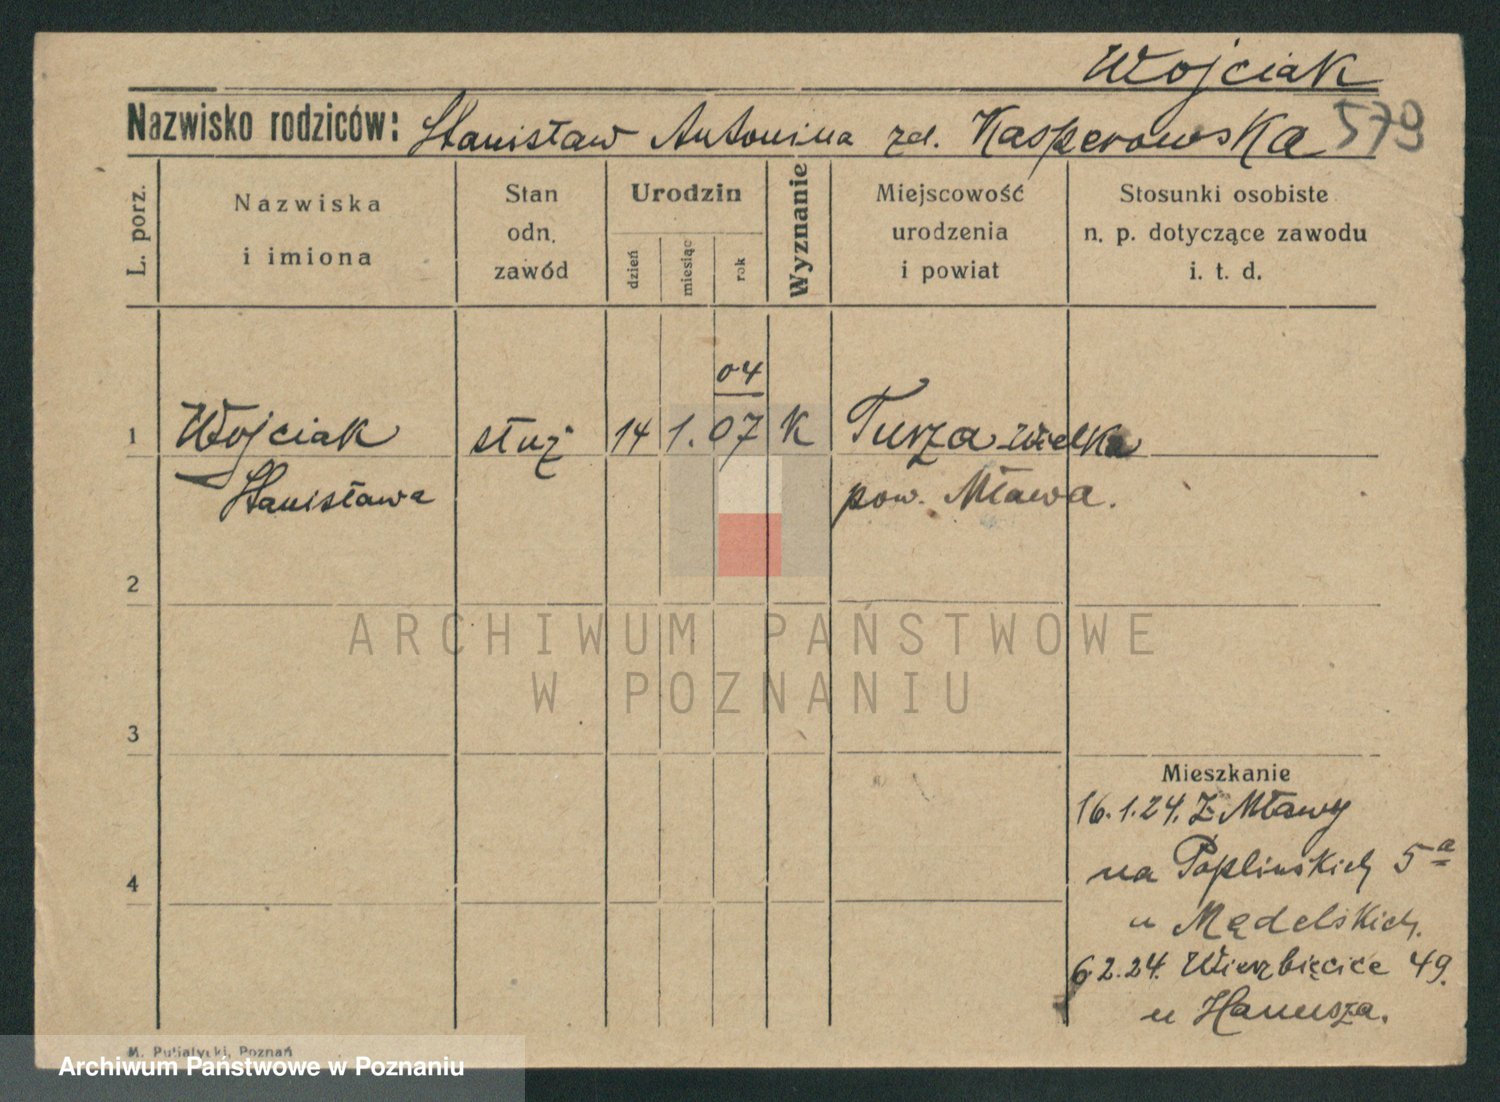 Wojciak
Nazwisko rodziców: Stanisław Antonina zd. Kasperowska 579
L. porz.
Nazwiska
i imiona
Stan
odn.
zawód
Urodzin
dzień
miesiąc
rok
Wyznanie
Miejscowość
urodzenia
i powiat
Stosunki osobiste
n. p. dotyczące zawodu
i. t. d.
04
1 Wojciak służ 14 1. 07 K Turza Wielka
Stanisława pow. Mława.
2
ARCHIWUM PAŃSTWOWE
W POZNANIU
3
Mieszkanie
16.1.24. Z Mławy
na Poplińskich 5a
4
u Mądelskich.
6.2.24. Wierzbięcice 49.
u Hanusza.
M. Putiatycki, Poznań
Archiwum Państwowe w Poznaniu